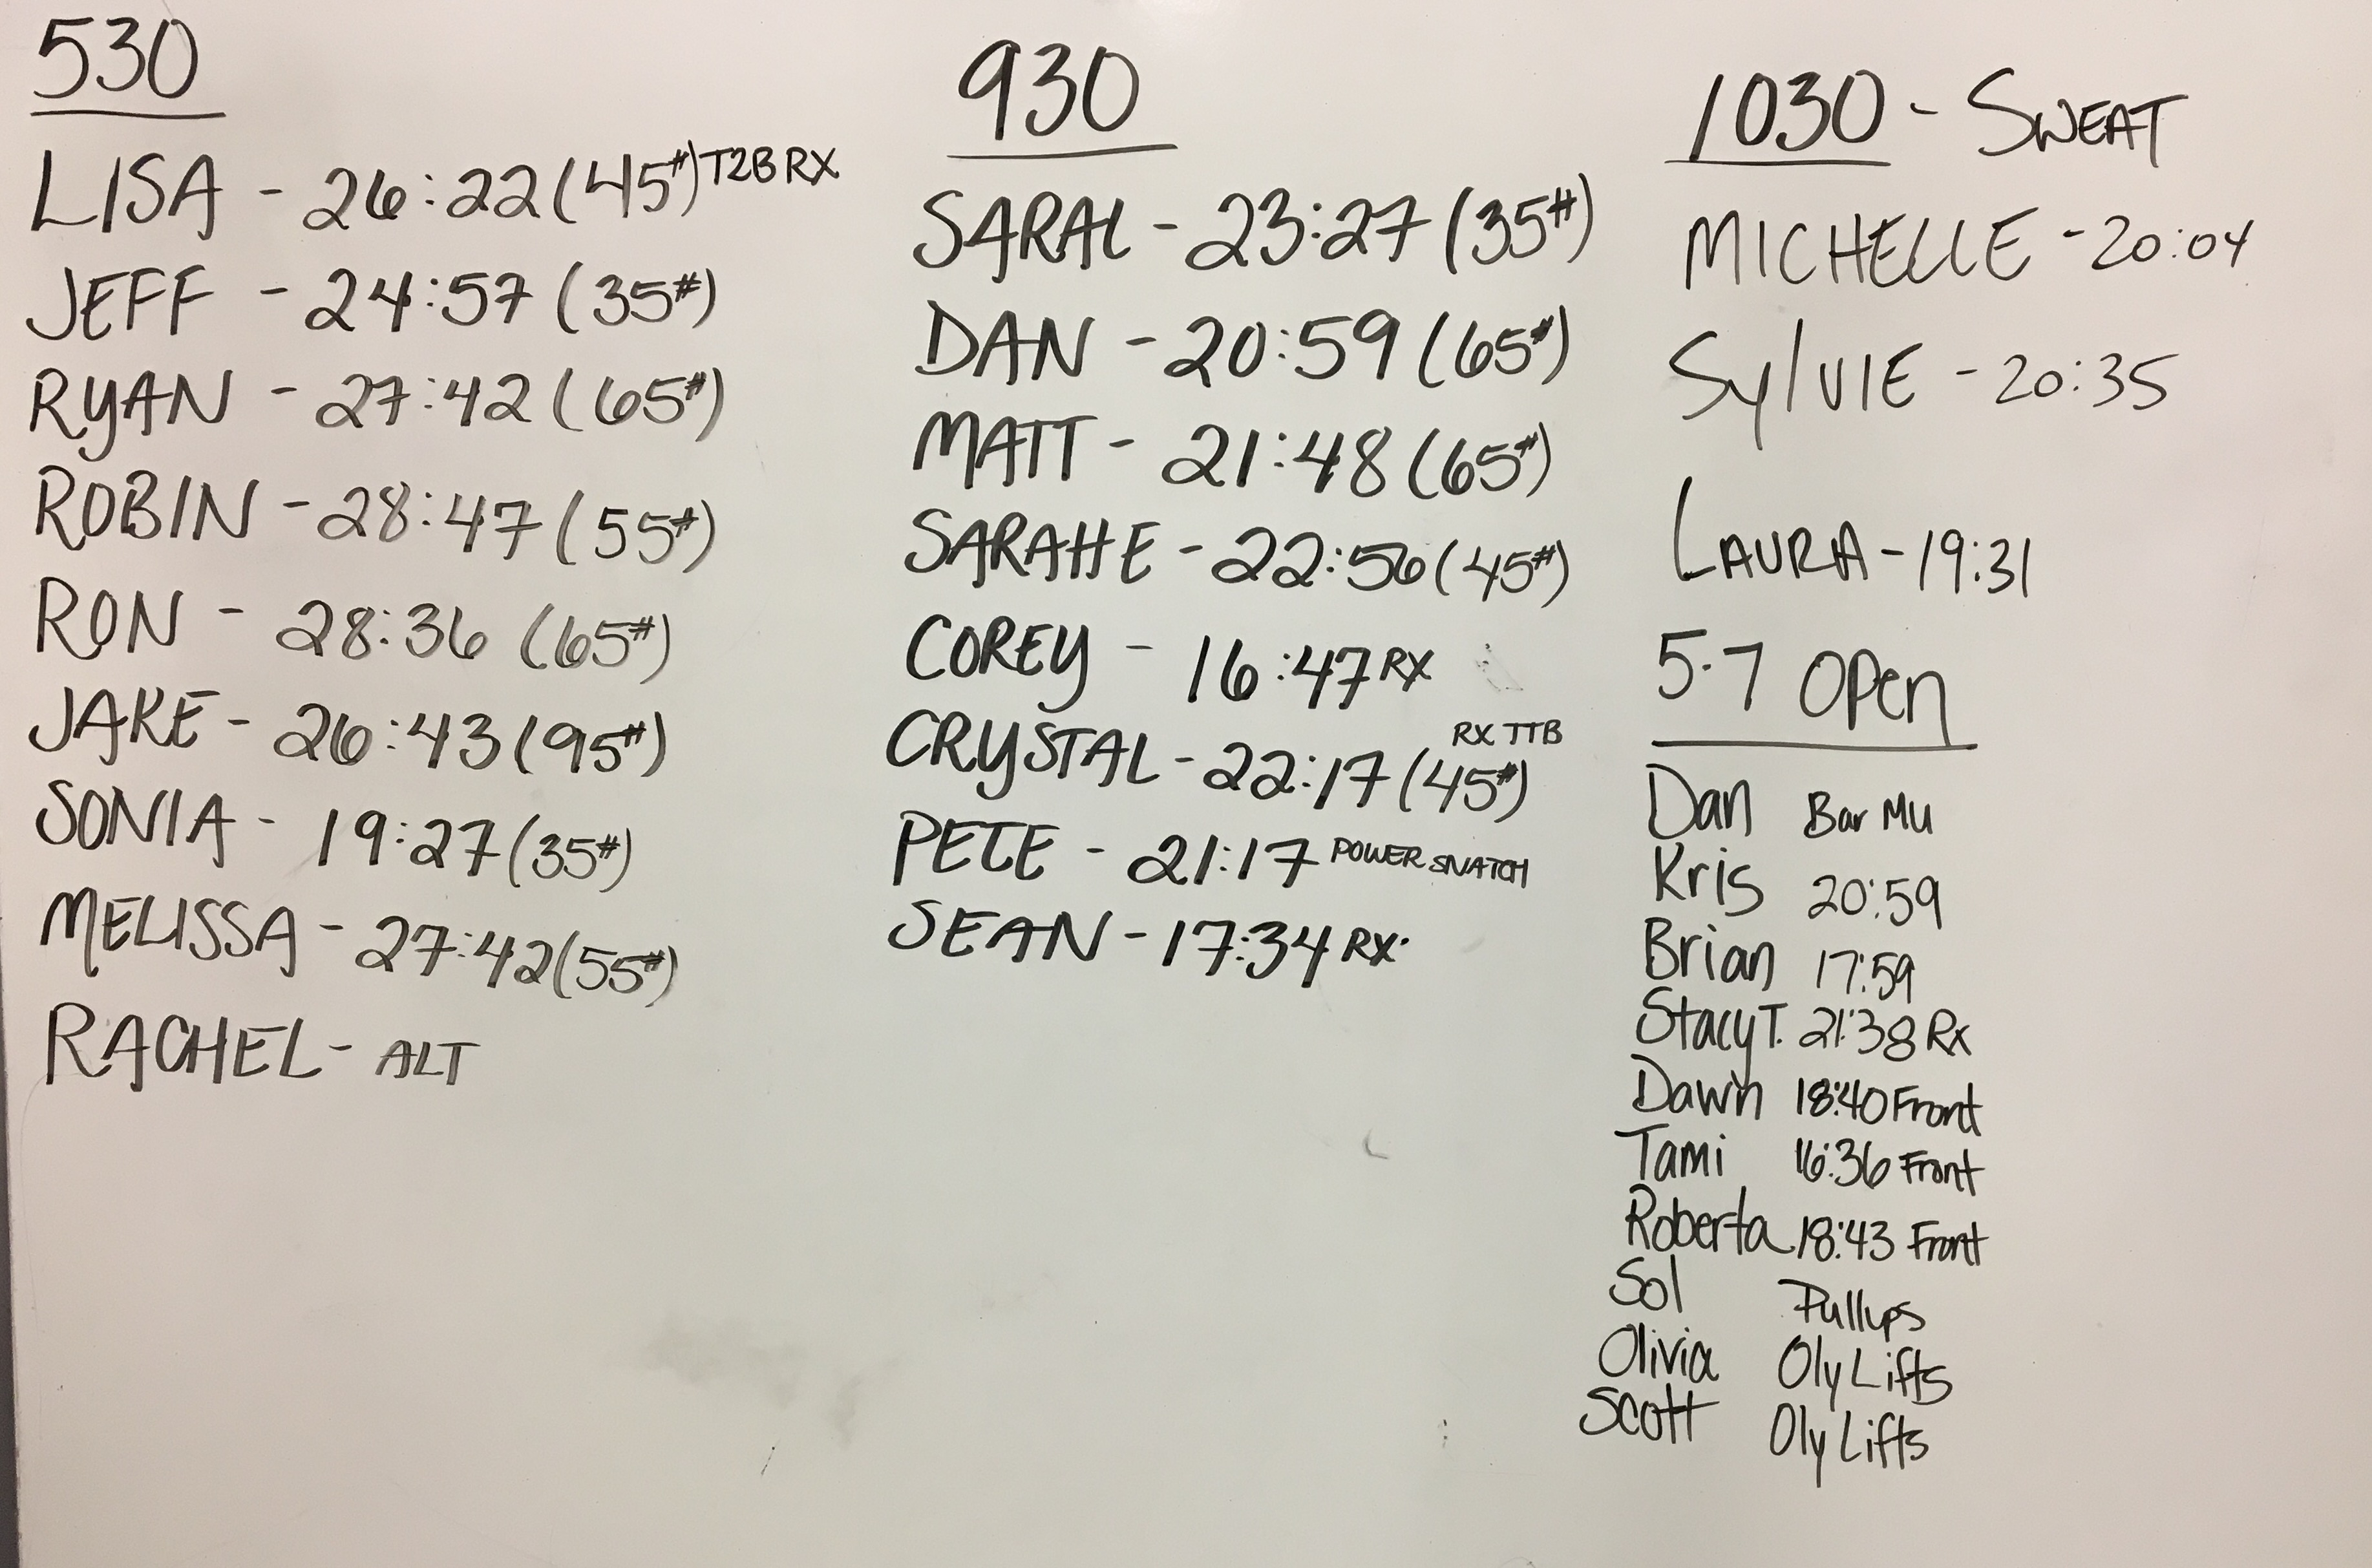 530
LISA - 26:22 (45#) T2B RX
JEFF - 24:57 (35#)
RYAN - 27:42 (65#)
ROBIN - 28:47 (55#)
RON - 28:36 (65#)
JAKE - 26:43 (95#)
SONIA - 19:27 (35#)
MELISSA - 27:42 (55#)
RACHEL - ALT
930
SARAL - 23:27 (35#)
DAN - 20:59 (65#)
MATT - 21:48 (65#)
SARAHE - 22:56 (45#)
COREY - 16:47 RX
CRYSTAL - 22:17 (45#) RX TTB
PETE - 21:17 POWER SNATCH
SEAN - 17:34 RX
1030 - SWEAT
MICHELLE - 20:04
SylVIE - 20:35
LAURA - 19:31
5-7 Open
Dan Bar MU
Kris 20:59
Brian 17:59
Stacy T. 21:38 Rx
Dawn 18:40 Front
Tami 16:36 Front
Roberta 18:43 Front
Sol Pullups
Olivia Oly Lifts
Scott Oly Lifts